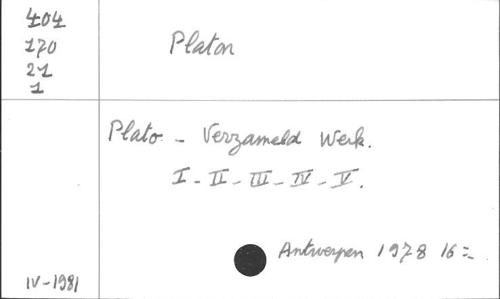 404
170
21
1
Platon
Plato - Verzameld Werk.
I - II - III - IV - V.
Antwerpen 1978 16=
IV-1981